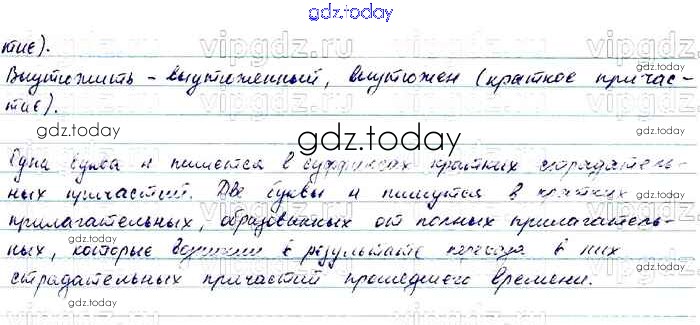 gdz.today
тие).
vipgdz.ru vipgdz.ru
Выутюжить – выутюженный, выутюжен (краткое причас-
тие).
gdz.today
gdz.today
gdz.today
Одна буква н пишется в суффиксах кратких страдатель-
ных причастий. Две буквы н пишутся в кратких
прилагательных, образованных от полных прилагатель-
ных, которые возникли в результате перехода в них
gdz.today
gdz.today
страдательных причастий прошедшего времени.
gdz.today
vipgdz.ru